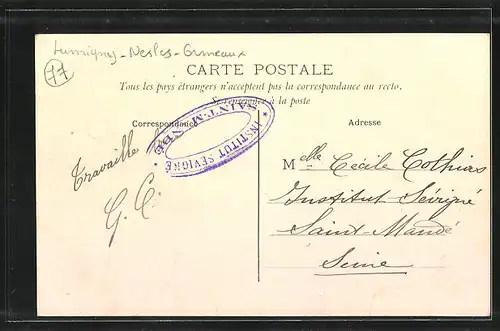 Lumigny-Nesles-Ormeaux
77
CARTE POSTALE
Tous les pays étrangers n'acceptent pas la correspondance au recto.
Se renseigner à la poste
Correspondance
Adresse
* INSTITUT SÉVIGNÉ *
SAINT-MANDÉ
Travaille
G. C.
Melle Cécile Cothias
Institut Sévigné
Saint-Mandé
Seine